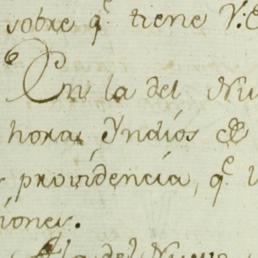 sobre q.^e tiene V.
En la del Nu
horas Yndios de
providencia, q.^e
iones.
A la del Nuevo